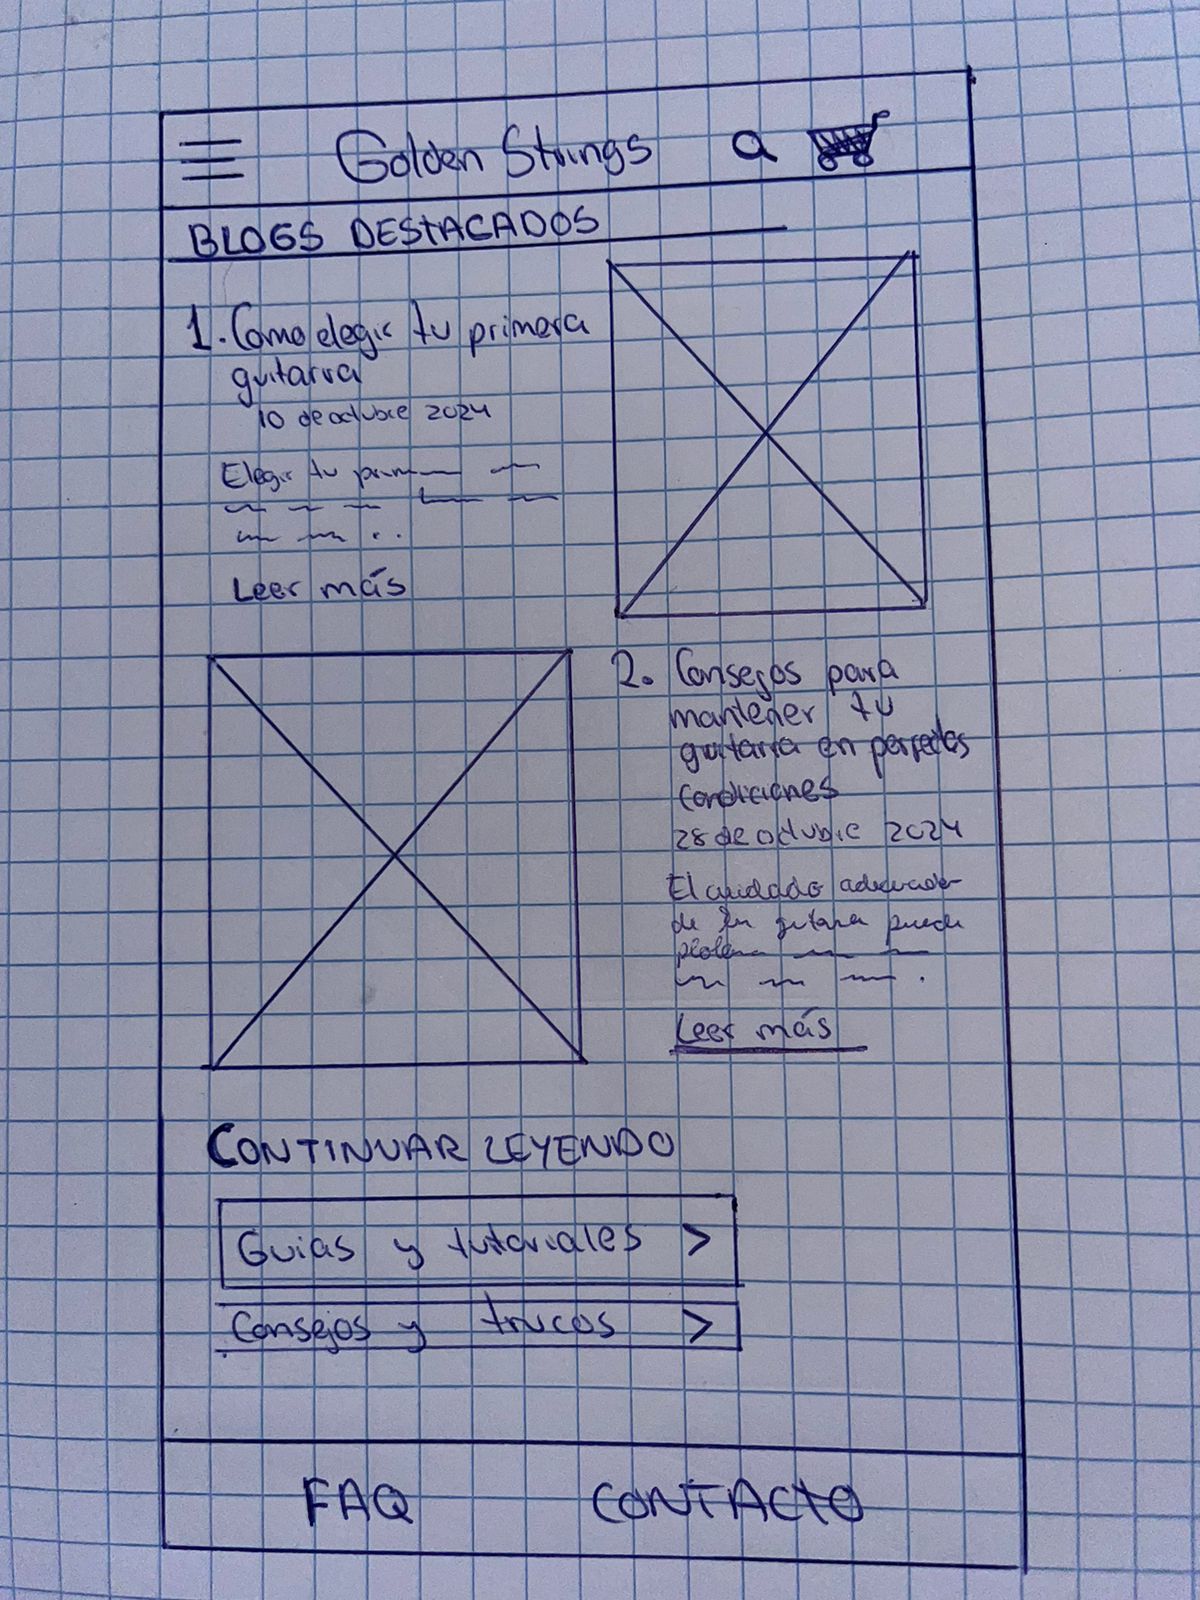 Golden Strings
BLOGS DESTACADOS
1. Como elegir tu primera
guitarra
10 de octubre 2024
Elegir tu
Leer más
2. Consejos para
mantener tu
guitarra en perfectas
condiciones
28 de octubre 2024
El cuidado adecuado
de tu guitara puede
Leer más
CONTINUAR LEYENDO
Guias y tutoriales >
Consejos y trucos >
FAQ CONTACTO